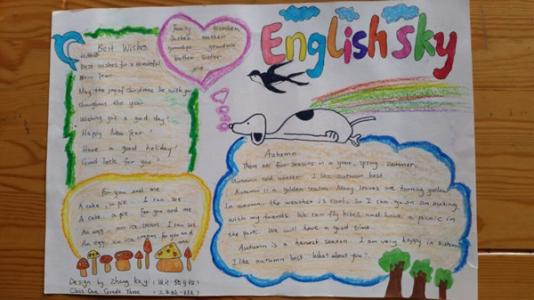 English sky
family members
father mother
grandpa grandma
brother sister
me
Best Wishes
Best wishes for a wonderful
New Year.
May the joy of Christmas be with you
throughout the year
Wishing you a good day!
Happy New Year!
Have a good holiday!
Good luck for you!
Autumn
There are four seasons in a year, spring, summer,
autumn and winter. I like autumn best.
Autumn is a golden season. Many leaves are turning yellow
In autumn the weather is cool. So I can go on an outing
with my friends. We can fly kites and have a picnic in
the park. We will have a good time.
Autumn is a harvest season. I am very happy in autumn
I like autumn best. What about you?
For you and me
A cake, a pie. I can see
A cake, a pie. For you and me
An egg, an ice cream. I can see
An egg, ice cream, for you and
me
Design by Zhang
Class One, Grade Three